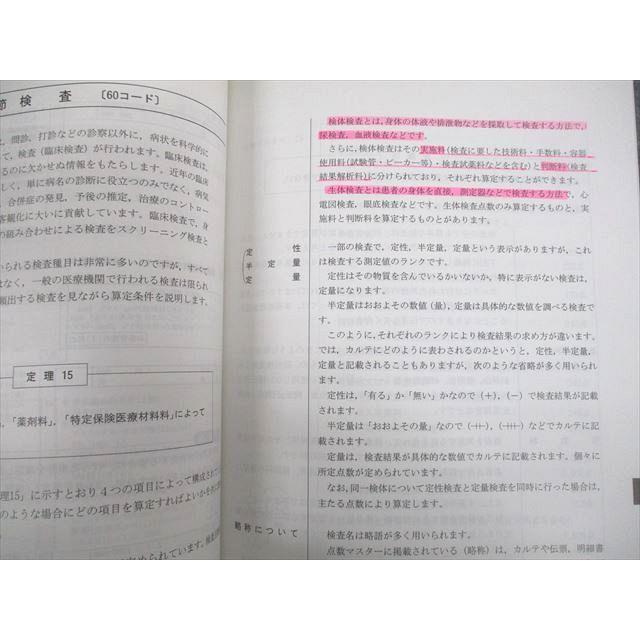 節 検 査 〔60コード〕
，問診，打診などの診察以外に，病状を科学的に
て，検査（臨床検査）が行われます。臨床検査は，
るのに欠かせぬ情報をもたらします。近年の臨床
しく，単に病名の診断に役立つのみでなく，病気
，合併症の発見，予後の推定，治療のコントロー
客観化に大いに貢献しています。臨床検査で，身
の組み合わせによる検査をスクリーニング検査と
いられる検査種目は非常に多いのですが，すべて
はなく，一般の医療機関で行われる検査は限られ
頻出する検査を見ながら算定条件を説明します。
定 理 15
，「薬剤料」，「特定保険医療材料料」によって
理15」に示すとおり４つの項目によって構成されて
のような場合にどの項目を算定すればよいかを
検体検査とは，身体の体液や排泄物などを採取して検査する方法で，
尿検査，血液検査などです。
さらに，検体検査はその実施料（検査に要した技術料・手数料・容器
使用料（試験管・ビーカー等）・検査試薬料などを含む）と判断料（検査
結果解析料）に分けられており，それぞれ算定することができます。
生体検査とは患者の身体を直接，測定器などで検査する方法で，心
電図検査，眼底検査などです。生体検査点数のみ算定するものと，実
施料と判断料を算定するものとがあります。
定 性
半 定 量
定 量
一部の検査で，定性，半定量，定量という表示がありますが，これ
は検査する測定値のランクです。
定性はその物質を含んでいるかいないか，特に表示がない検査は，
定量になります。
半定量はおおよその数値（量），定量は具体的な数値を調べる検査で
す。
このように，それぞれのランクにより検査結果の求め方が違います。
では，カルテにどのように表わされるのかというと，定性，半定量，
定量と記載されることもありますが，次のような省略が多く用いられ
ます。
定性は，「有る」か「無い」かなので（＋），（－）で検査結果が記載
されます。
半定量は「おおよその量」なので（⧺），（⧻）などでカルテに記
載されます。
定量は，検査結果が具体的な数値でカルテに記載されます。個々に
所定点数が定められています。
なお，同一検体について定性検査と定量検査を同時に行った場合は，
主たる点数により算定します。
略称について
検査名は略語が多く用いられます。
点数マスターに掲載されている（略称）は，カルテや伝票，明細書